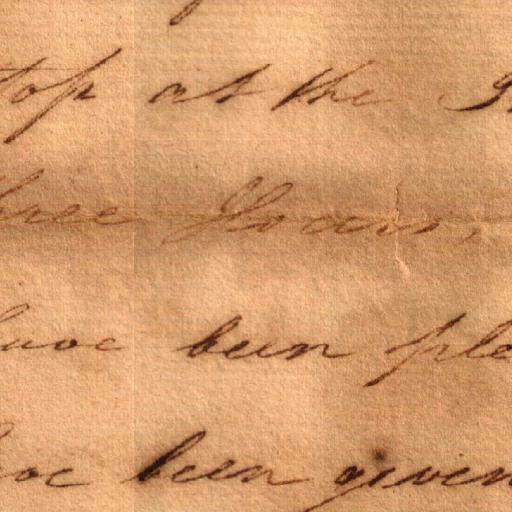 top at the
three Hours,
have been ple
have been given